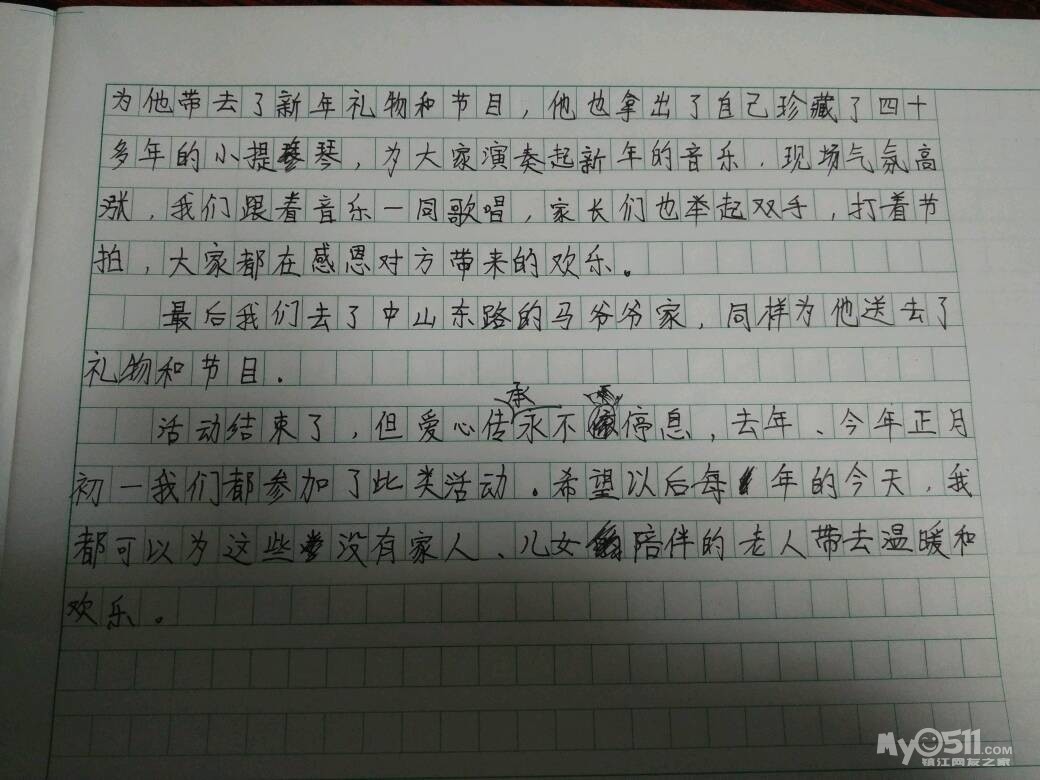 为他带去了新年礼物和节目，他也拿出了自己珍藏了四十
多年的小提琴，为大家演奏起新年的音乐．现场气氛高
涨，我们跟着音乐一同歌唱，家长们也举起双手，打着节
拍，大家都在感恩对方带来的欢乐。
最后我们去了中山东路的马爷爷家，同样为他送去了
礼物和节目．
活动结束了，但爱心传承永不停息，去年、今年正月
初一我们都参加了此类活动．希望以后每年的今天，我
都可以为这些没有家人、儿女陪伴的老人带去温暖和
欢乐。
My0511.COM
镇江网友之家